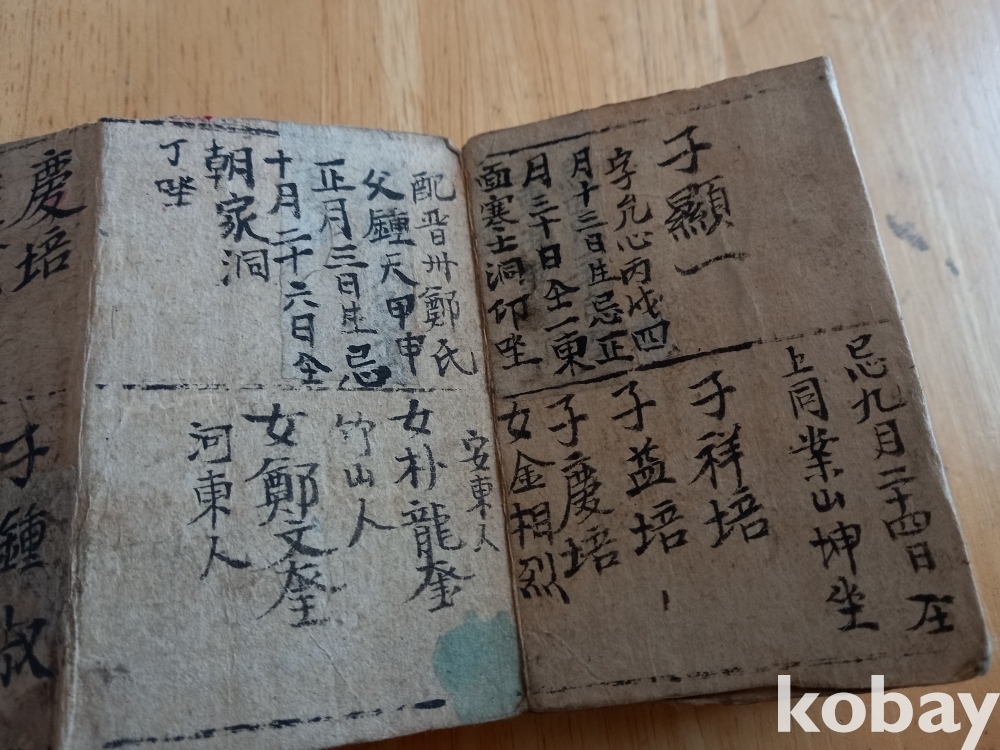 子顯一
字允心丙戌四
月十三日生忌正
月三十日仝一東
面寒士洞卯唑
忌九月二十四日 在
上同業山坤坐
子祥培
子益培
子慶培
女金相烈
安東人
配晋州鄭氏
父鍾天甲申
正月三日生忌
十月二十六日仝
朝家洞
丁唑
女朴龍奎
竹山人
女鄭文奎
河東人
慶培
子鍾叔
kobay